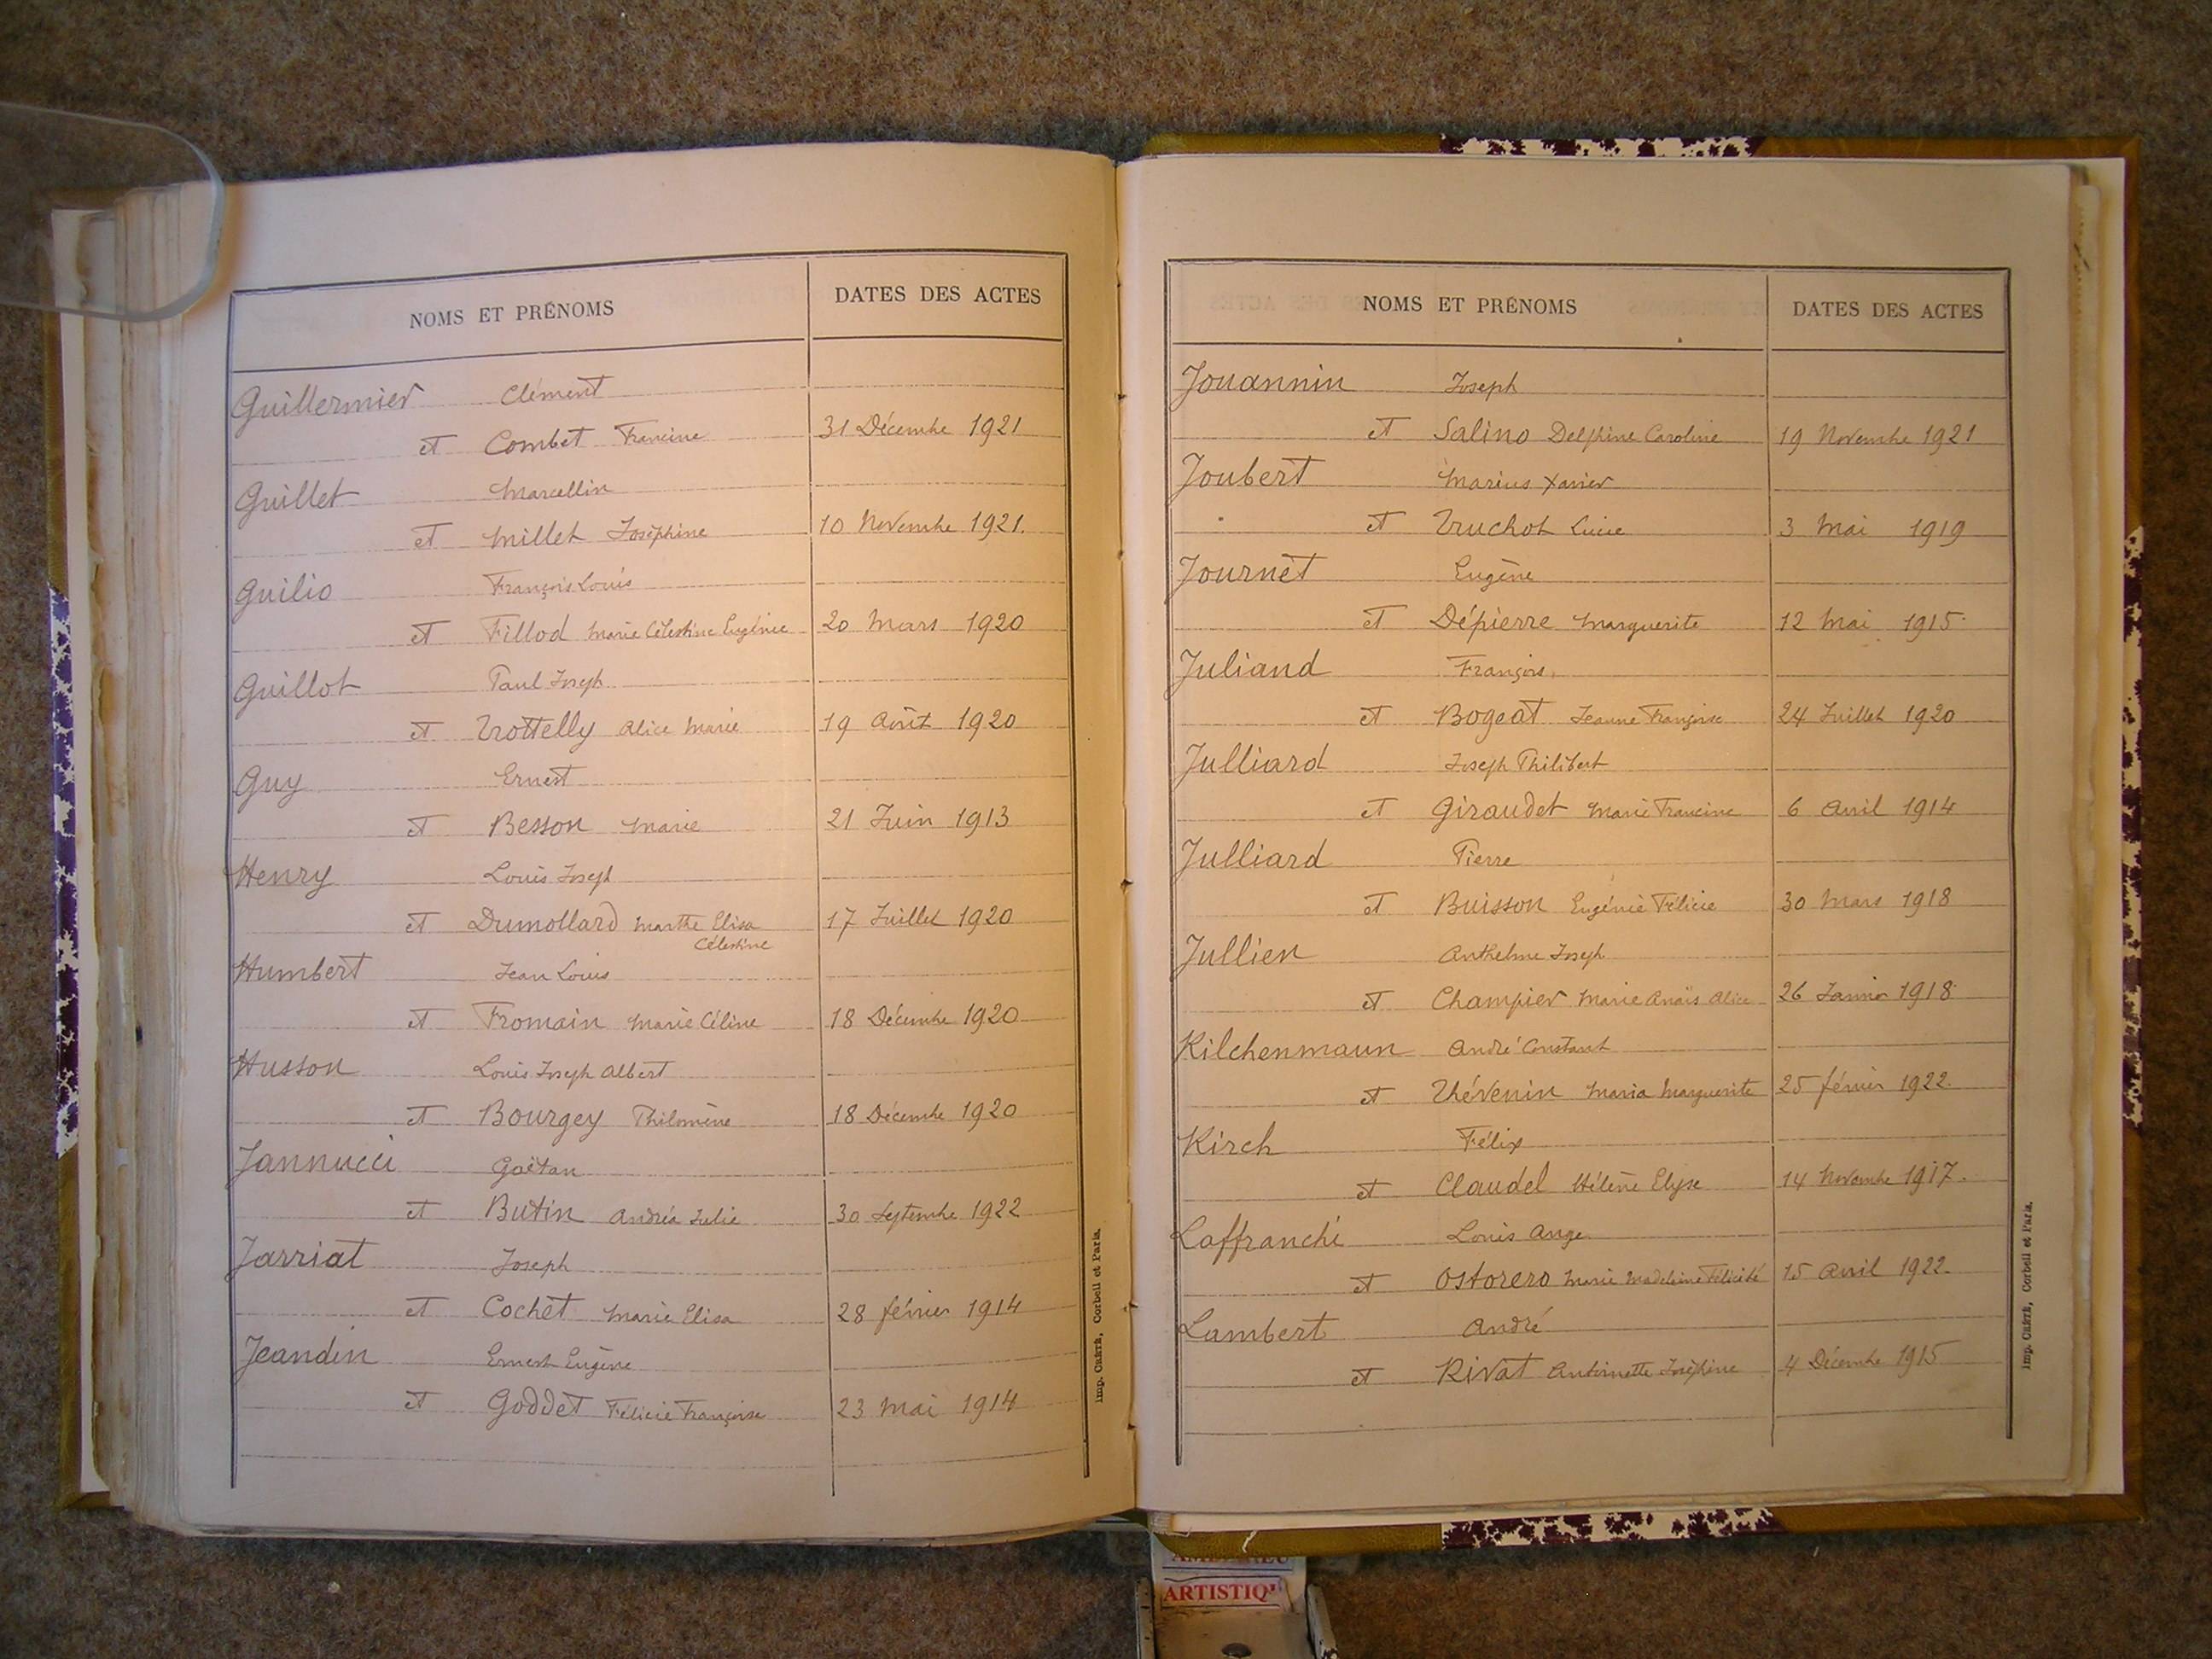 NOMS ET PRÉNOMS DATES DES ACTES
Guillermier Clément
et Combet Francine 31 Décembre 1921
Guillet Marcellin
et Millet Joséphine 10 Novembre 1921.
Guilio François Louis
et Fillod Marie Célestine Eugénie 20 Mars 1920
Guillot Paul Joseph
et Trottelly Alice Marie 19 Août 1920
Guy Ernest
et Besson Marie 21 Juin 1913
Henry Louis Joseph
et Dumollard Marthe Elisa 17 Juillet 1920
Célestine
Humbert Jean Louis
et Fromain Marie Céline 18 Décembre 1920
Husson Louis Joseph Albert
et Bourgey Philomène 18 Décembre 1920
Jannucci Gaëtan
et Butin Andréa Julie 30 Septembre 1922
Jarriat Joseph
et Cochet Marie Elisa 28 février 1914
Jeandin Ernest Eugène
et Goddet Félicie Françoise 23 Mai 1914
Imp. Crété, Corbeil et Paris.
NOMS ET PRÉNOMS DATES DES ACTES
Jouannin Joseph
et Salino Delphine Caroline 19 Novembre 1921
Joubert Marius Xavier
et Truchot Lucie 3 Mai 1919
Journet Eugène
et Dépierre Marguerite 12 Mai 1915
Juliand François
et Bogeat Jeanne Françoise 24 Juillet 1920
Julliard Joseph Philibert
et Giraudet Marie Francine 6 Avril 1914
Julliard Pierre
et Buisson Eugénie Félicie 30 Mars 1918
Jullien Anthelme Joseph
et Champier Marie Anaïs Alice 26 Janvier 1918
Kilchenmann André Constant
et Thévenin Maria Marguerite 25 février 1922.
Kirch Félix
et Claudel Hélène Elyse 14 Novembre 1917.
Laffranchi Louis Ange
et Ostorero Marie Madeleine Félicité 15 Avril 1922.
Lambert André
et Rivat Antoinette Joséphine 4 Décembre 1915
Imp. Crété, Corbeil et Paris.
ARTISTIQ